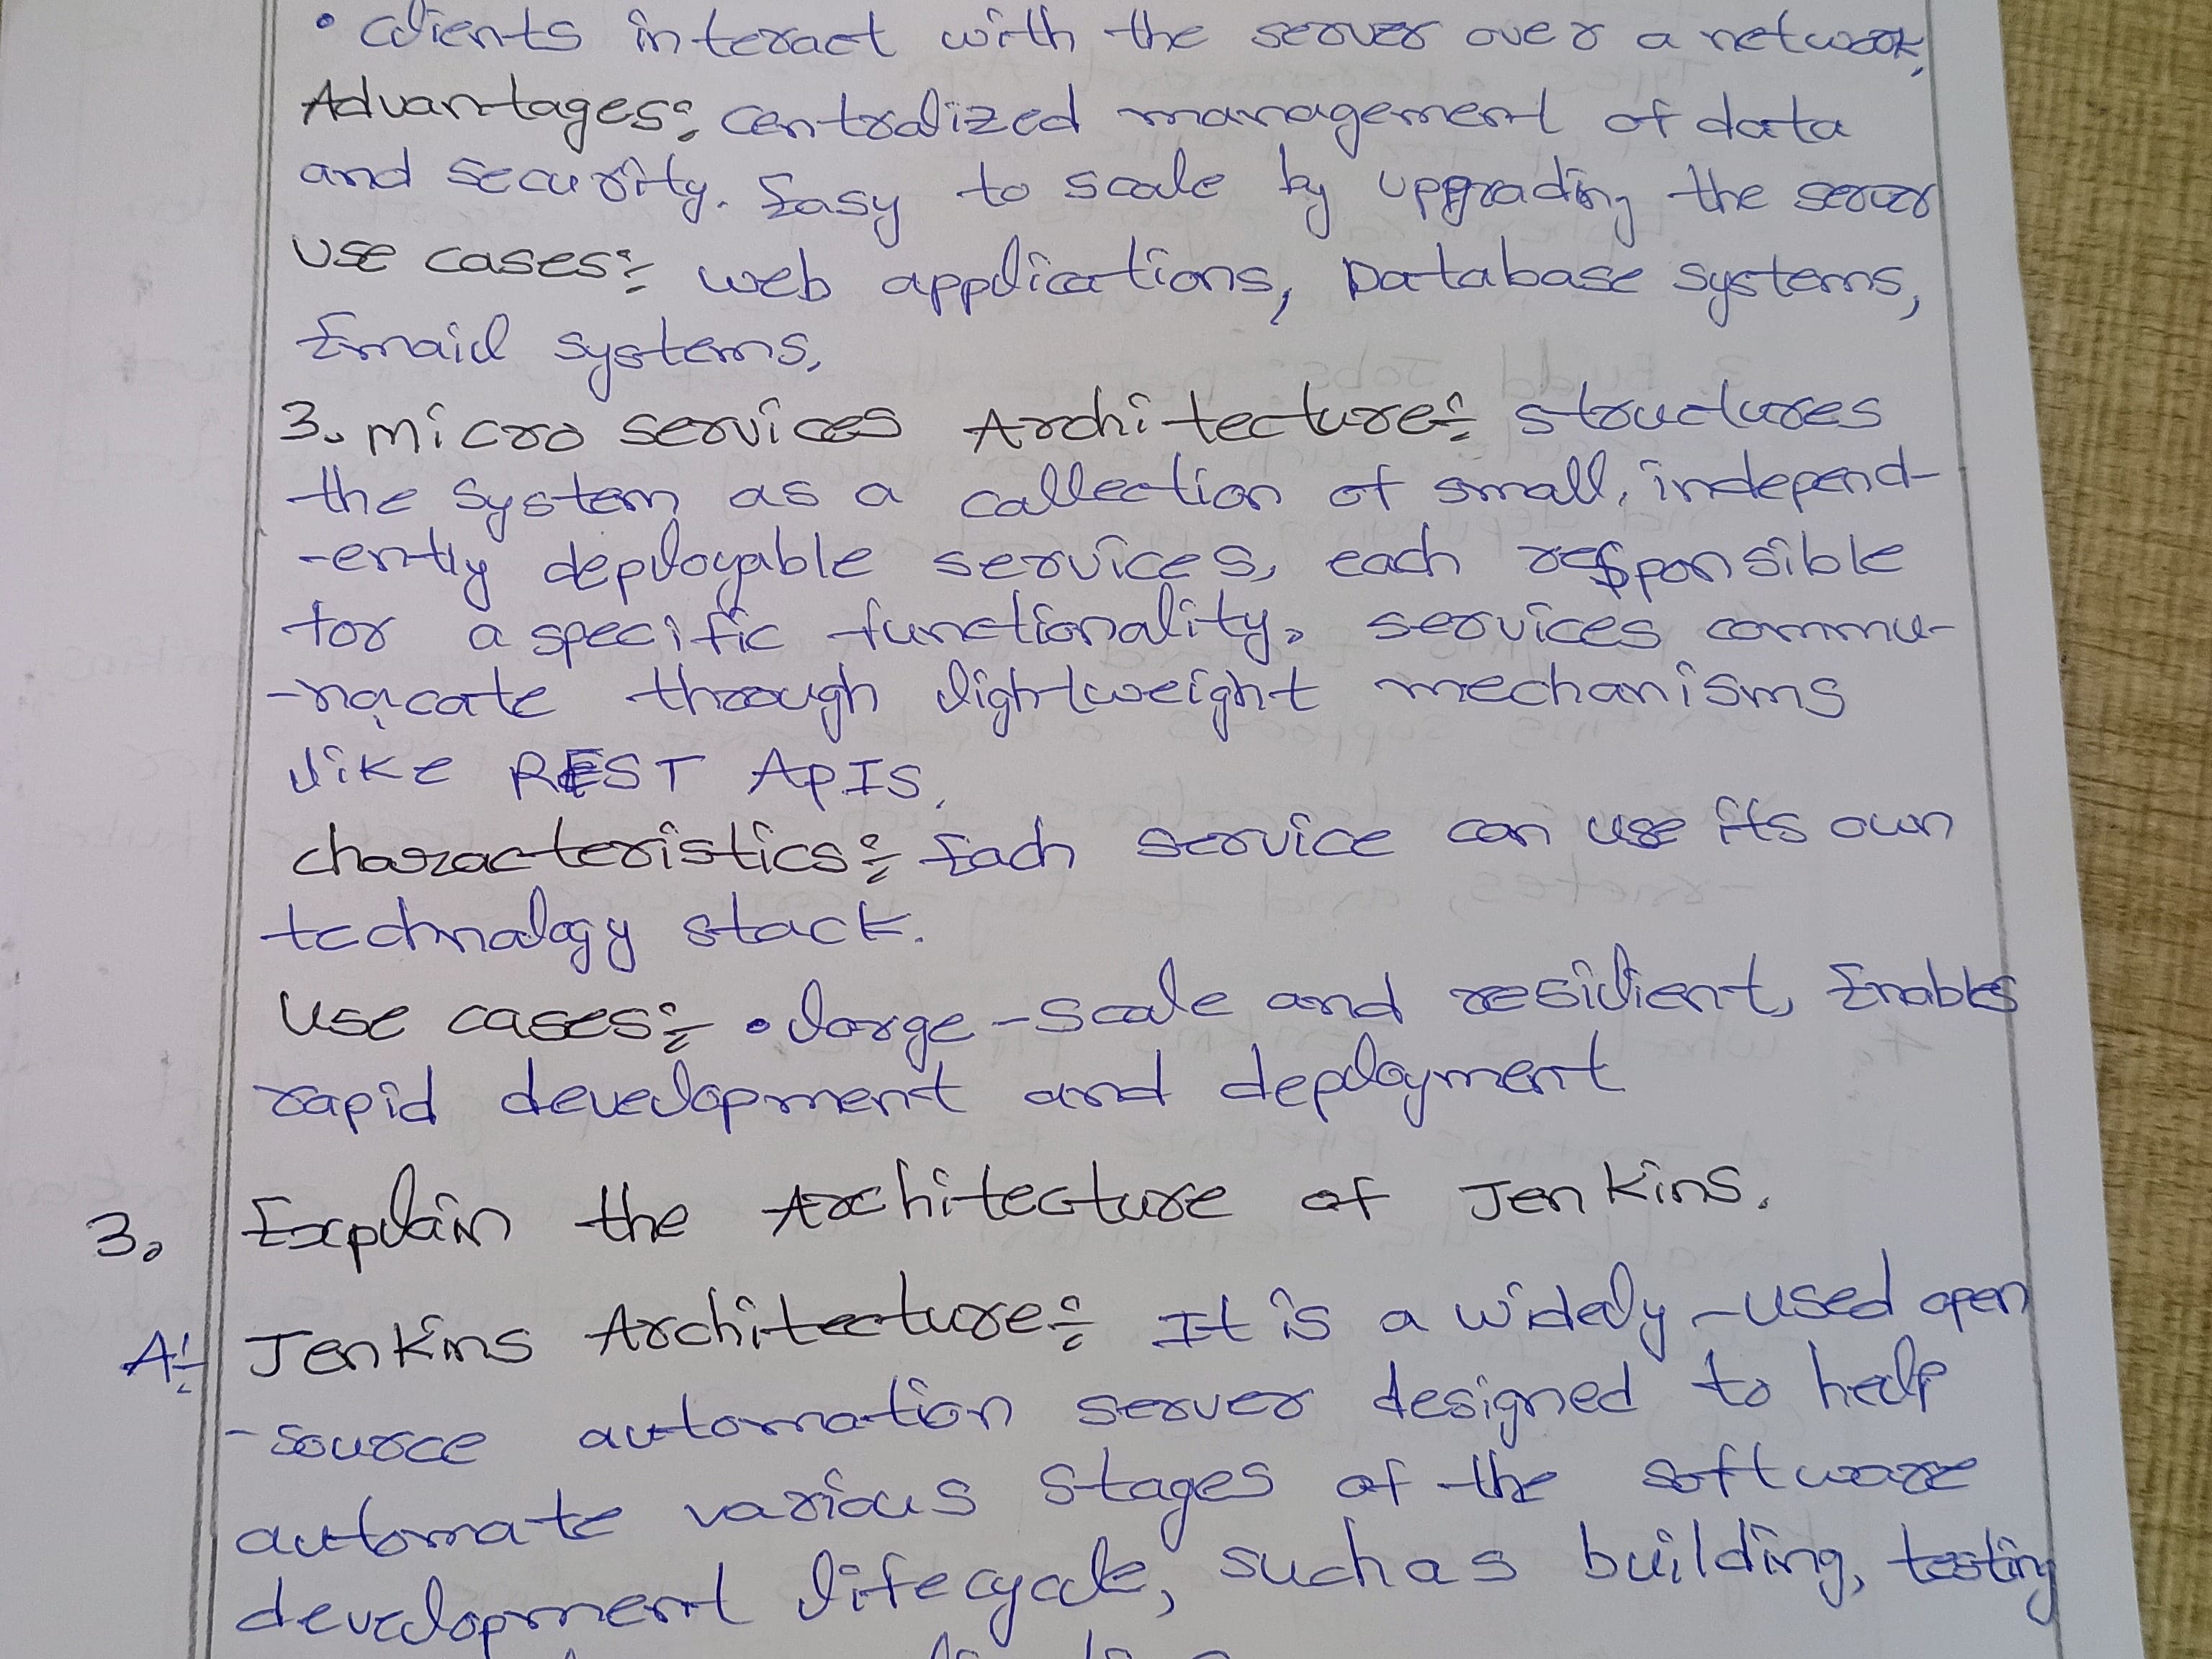 • Clients interact with the server over a network,
Advantages:- centralized management of data
and security. Easy to scale by upgrading the server
use cases:- web applications, Database systems,
Email systems,
3. Micro services Architecture:- structures
the system as a collection of small, independ-
-ently deployable services, each responsible
for a specific functionality. services commu-
-nicate through lightweight mechanisms
like REST APIS.
characteristics:- Each service can use its own
technology stack.
Use cases:- • large-scale and resilient, Enables
rapid development and deployment
3. Explain the Architecture of Jenkins.
A:- Jenkins Architecture:- It is a widely-used open
-source automation server designed to help
automate various stages of the software
development lifecycle, such as building, testing